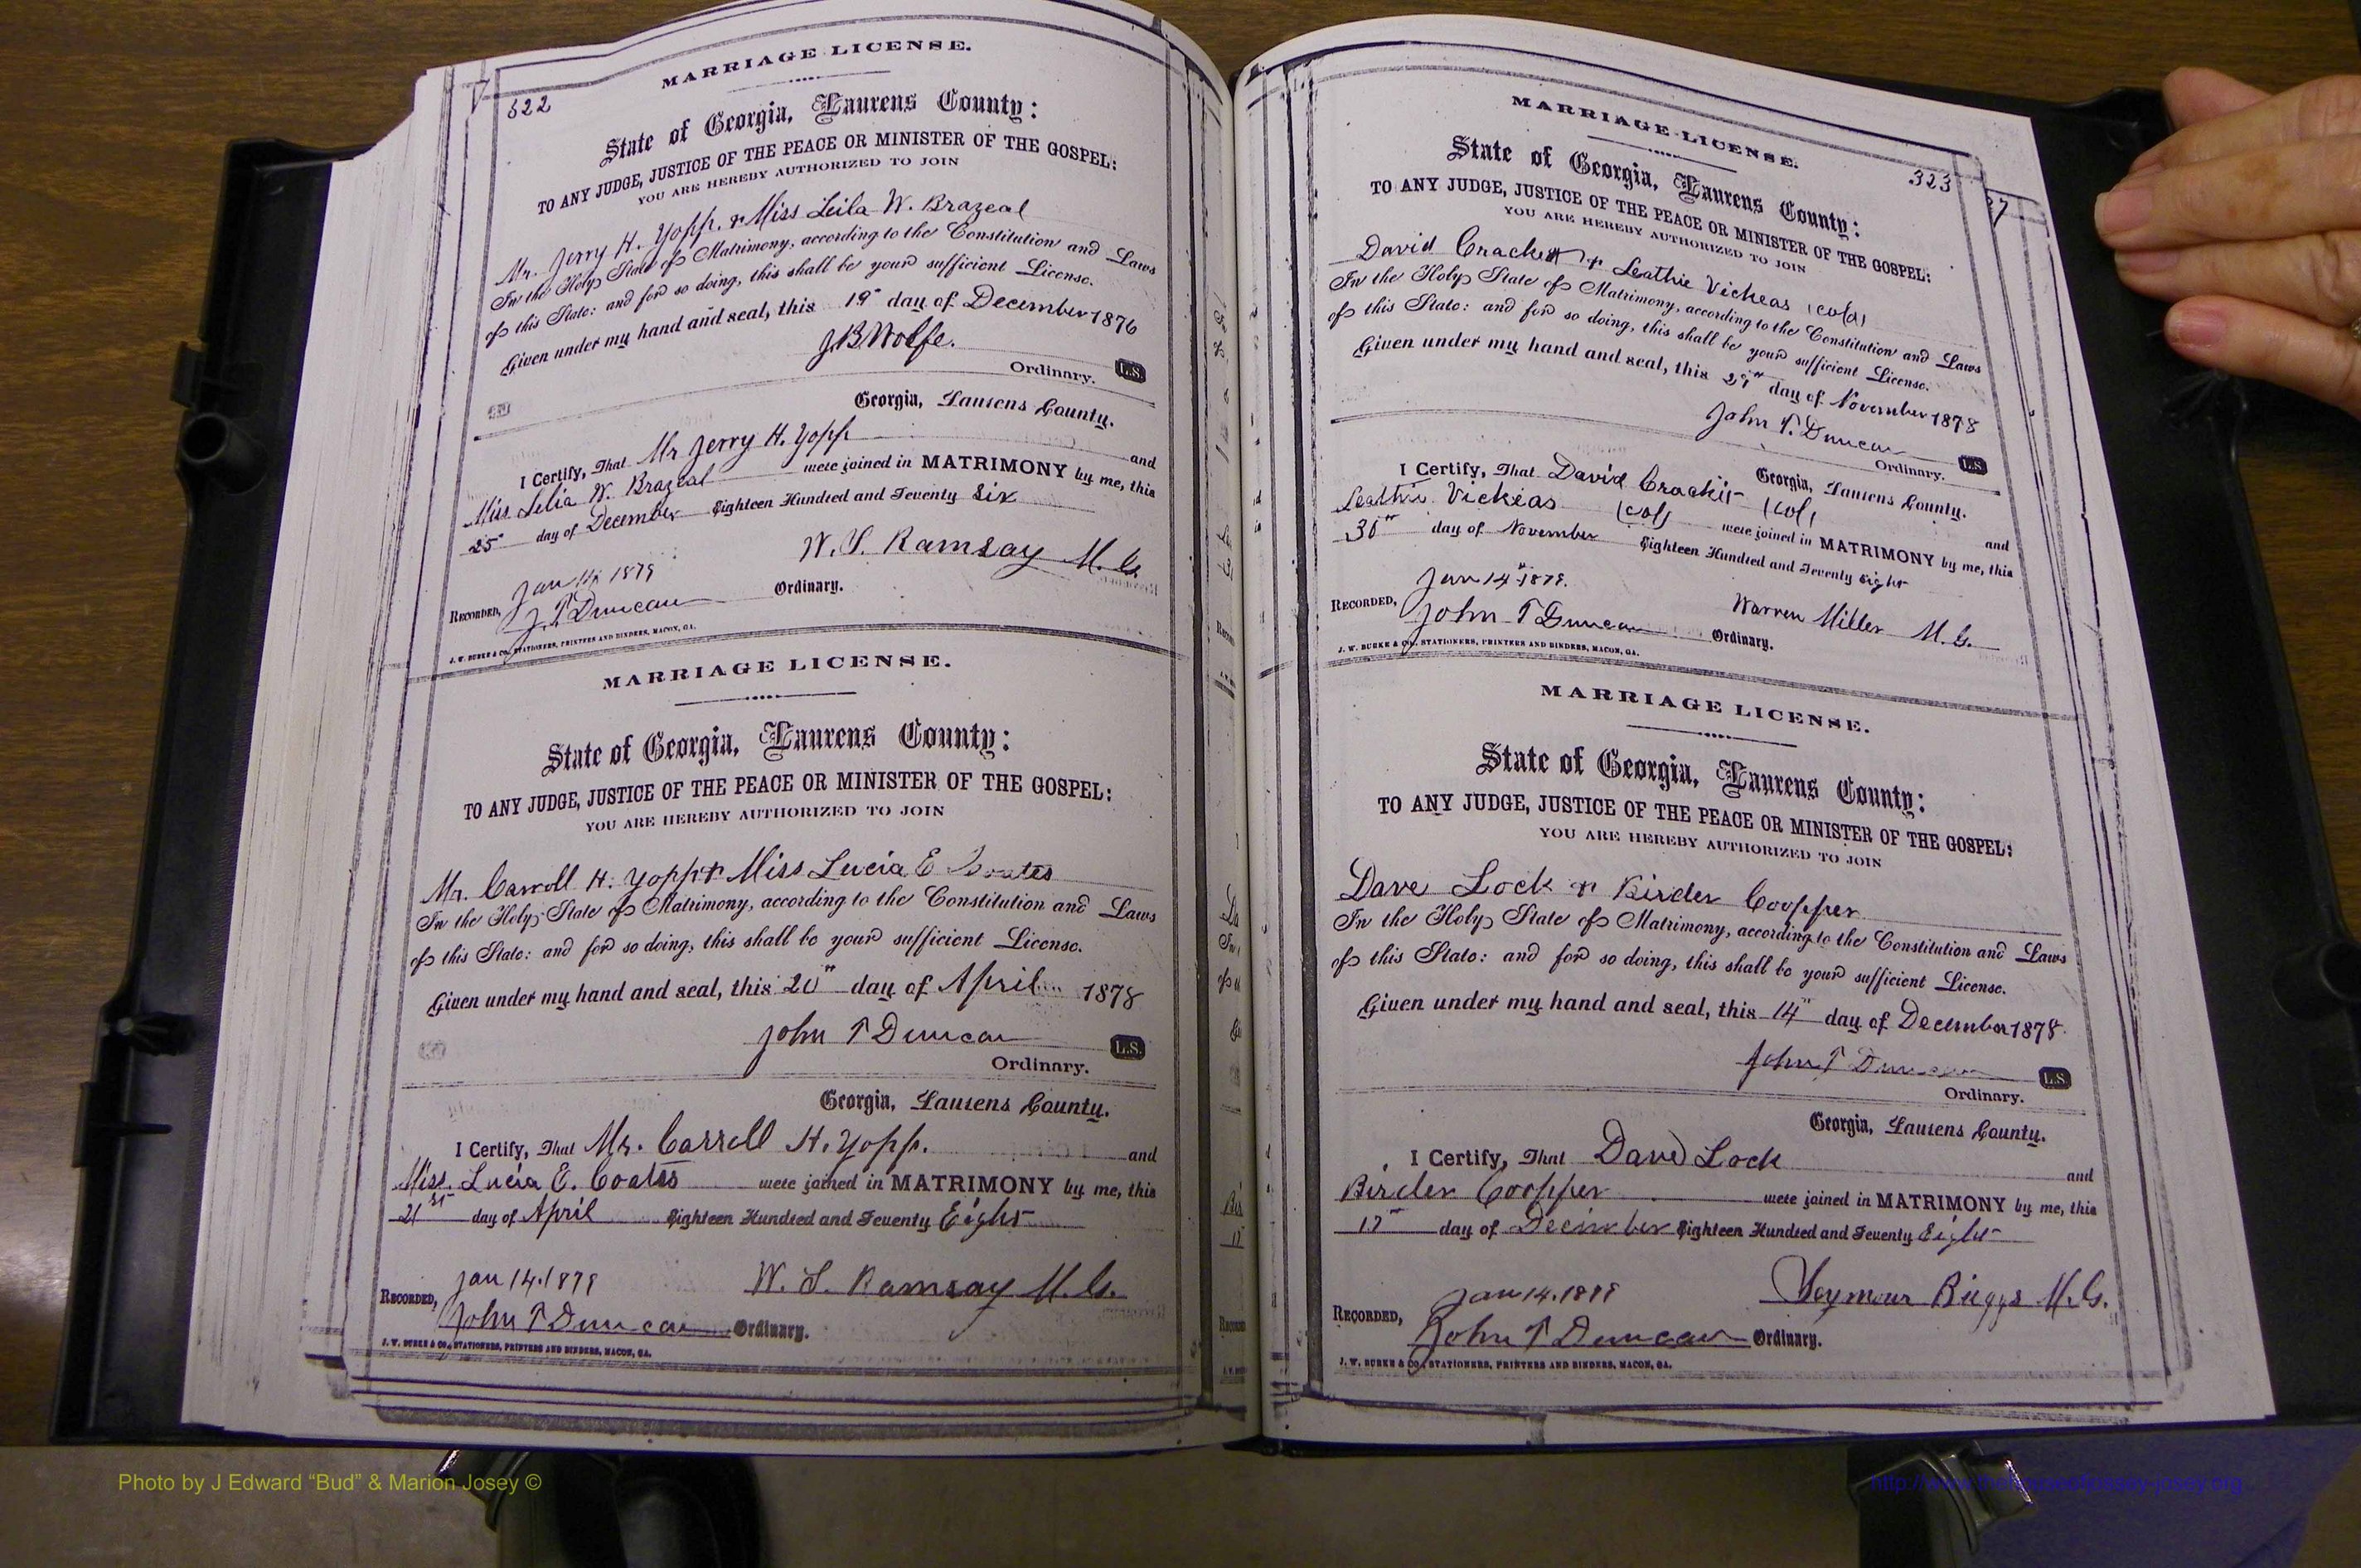 322
MARRIAGE LICENSE.
State of Georgia, Laurens County:
TO ANY JUDGE, JUSTICE OF THE PEACE OR MINISTER OF THE GOSPEL:
YOU ARE HEREBY AUTHORIZED TO JOIN
Mr. Jerry H. Yopp. & Miss Leila W. Brazeal
In the Holy State of Matrimony, according to the Constitution and Laws
of this State: and for so doing, this shall be your sufficient License.
Given under my hand and seal, this 19" day of December 1876
J.B. Wolfe.
Ordinary. L.S.
Georgia, Laurens County.
I Certify, That Mr Jerry H. Yopp and
Miss Lelia W. Brazeal were joined in MATRIMONY by me, this
25" day of December Eighteen Hundred and Seventy Six
W. S. Ramsay M. G.
RECORDED, Jan 14, 1879
J. T Duncan Ordinary.
J. W. BURKE & CO., STATIONERS, PRINTERS AND BINDERS, MACON, GA.
MARRIAGE LICENSE.
State of Georgia, Laurens County:
TO ANY JUDGE, JUSTICE OF THE PEACE OR MINISTER OF THE GOSPEL:
YOU ARE HEREBY AUTHORIZED TO JOIN
Mr. Carroll H. Yopp & Miss Lucia E Coates
In the Holy State of Matrimony, according to the Constitution and Laws
of this State: and for so doing, this shall be your sufficient License.
Given under my hand and seal, this 20" day of April 1878
John T Duncan
L.S.
Ordinary.
Georgia, Laurens County.
I Certify, That Mr. Carroll H. Yopp. and
Miss. Lucia E. Coates were joined in MATRIMONY by me, this
21st day of April Eighteen Hundred and Seventy Eight
W. S. Ramsay M. G.
RECORDED, Jan 14. 1879
John T Duncan Ordinary.
J. W. BURKE & CO., STATIONERS, PRINTERS AND BINDERS, MACON, GA.
323
MARRIAGE LICENSE.
State of Georgia, Laurens County:
TO ANY JUDGE, JUSTICE OF THE PEACE OR MINISTER OF THE GOSPEL:
YOU ARE HEREBY AUTHORIZED TO JOIN
David Crackett & Leathie Vickeas (col)
In the Holy State of Matrimony, according to the Constitution and Laws
of this State: and for so doing, this shall be your sufficient License.
Given under my hand and seal, this 29" day of November 1878
John T. Duncan
Ordinary. L.S.
Georgia, Laurens County.
I Certify, That David Crackit (col) and
Leathie Vickeas (col) were joined in MATRIMONY by me, this
30" day of November Eighteen Hundred and Seventy Eight
Warren Miller M. G.
RECORDED, Jan 14" 1879.
John T Duncan Ordinary.
J. W. BURKE & CO., STATIONERS, PRINTERS AND BINDERS, MACON, GA.
MARRIAGE LICENSE.
State of Georgia, Laurens County:
TO ANY JUDGE, JUSTICE OF THE PEACE OR MINISTER OF THE GOSPEL:
YOU ARE HEREBY AUTHORIZED TO JOIN
Dave Lock & Birder Coopper
In the Holy State of Matrimony, according to the Constitution and Laws
of this State: and for so doing, this shall be your sufficient License.
Given under my hand and seal, this 14" day of December 1878.
John T Duncan
L.S.
Ordinary.
Georgia, Laurens County.
I Certify, That David Lock and
Birder Coopper were joined in MATRIMONY by me, this
day of December Eighteen Hundred and Seventy Eight
Seymour Riggs M. G.
RECORDED, Jan 14. 1879
John T Duncan Ordinary.
J. W. BURKE & CO., STATIONERS, PRINTERS AND BINDERS, MACON, GA.
Photo by J Edward “Bud” & Marion Josey ©
http://www.thehouseofjossey-josey.org